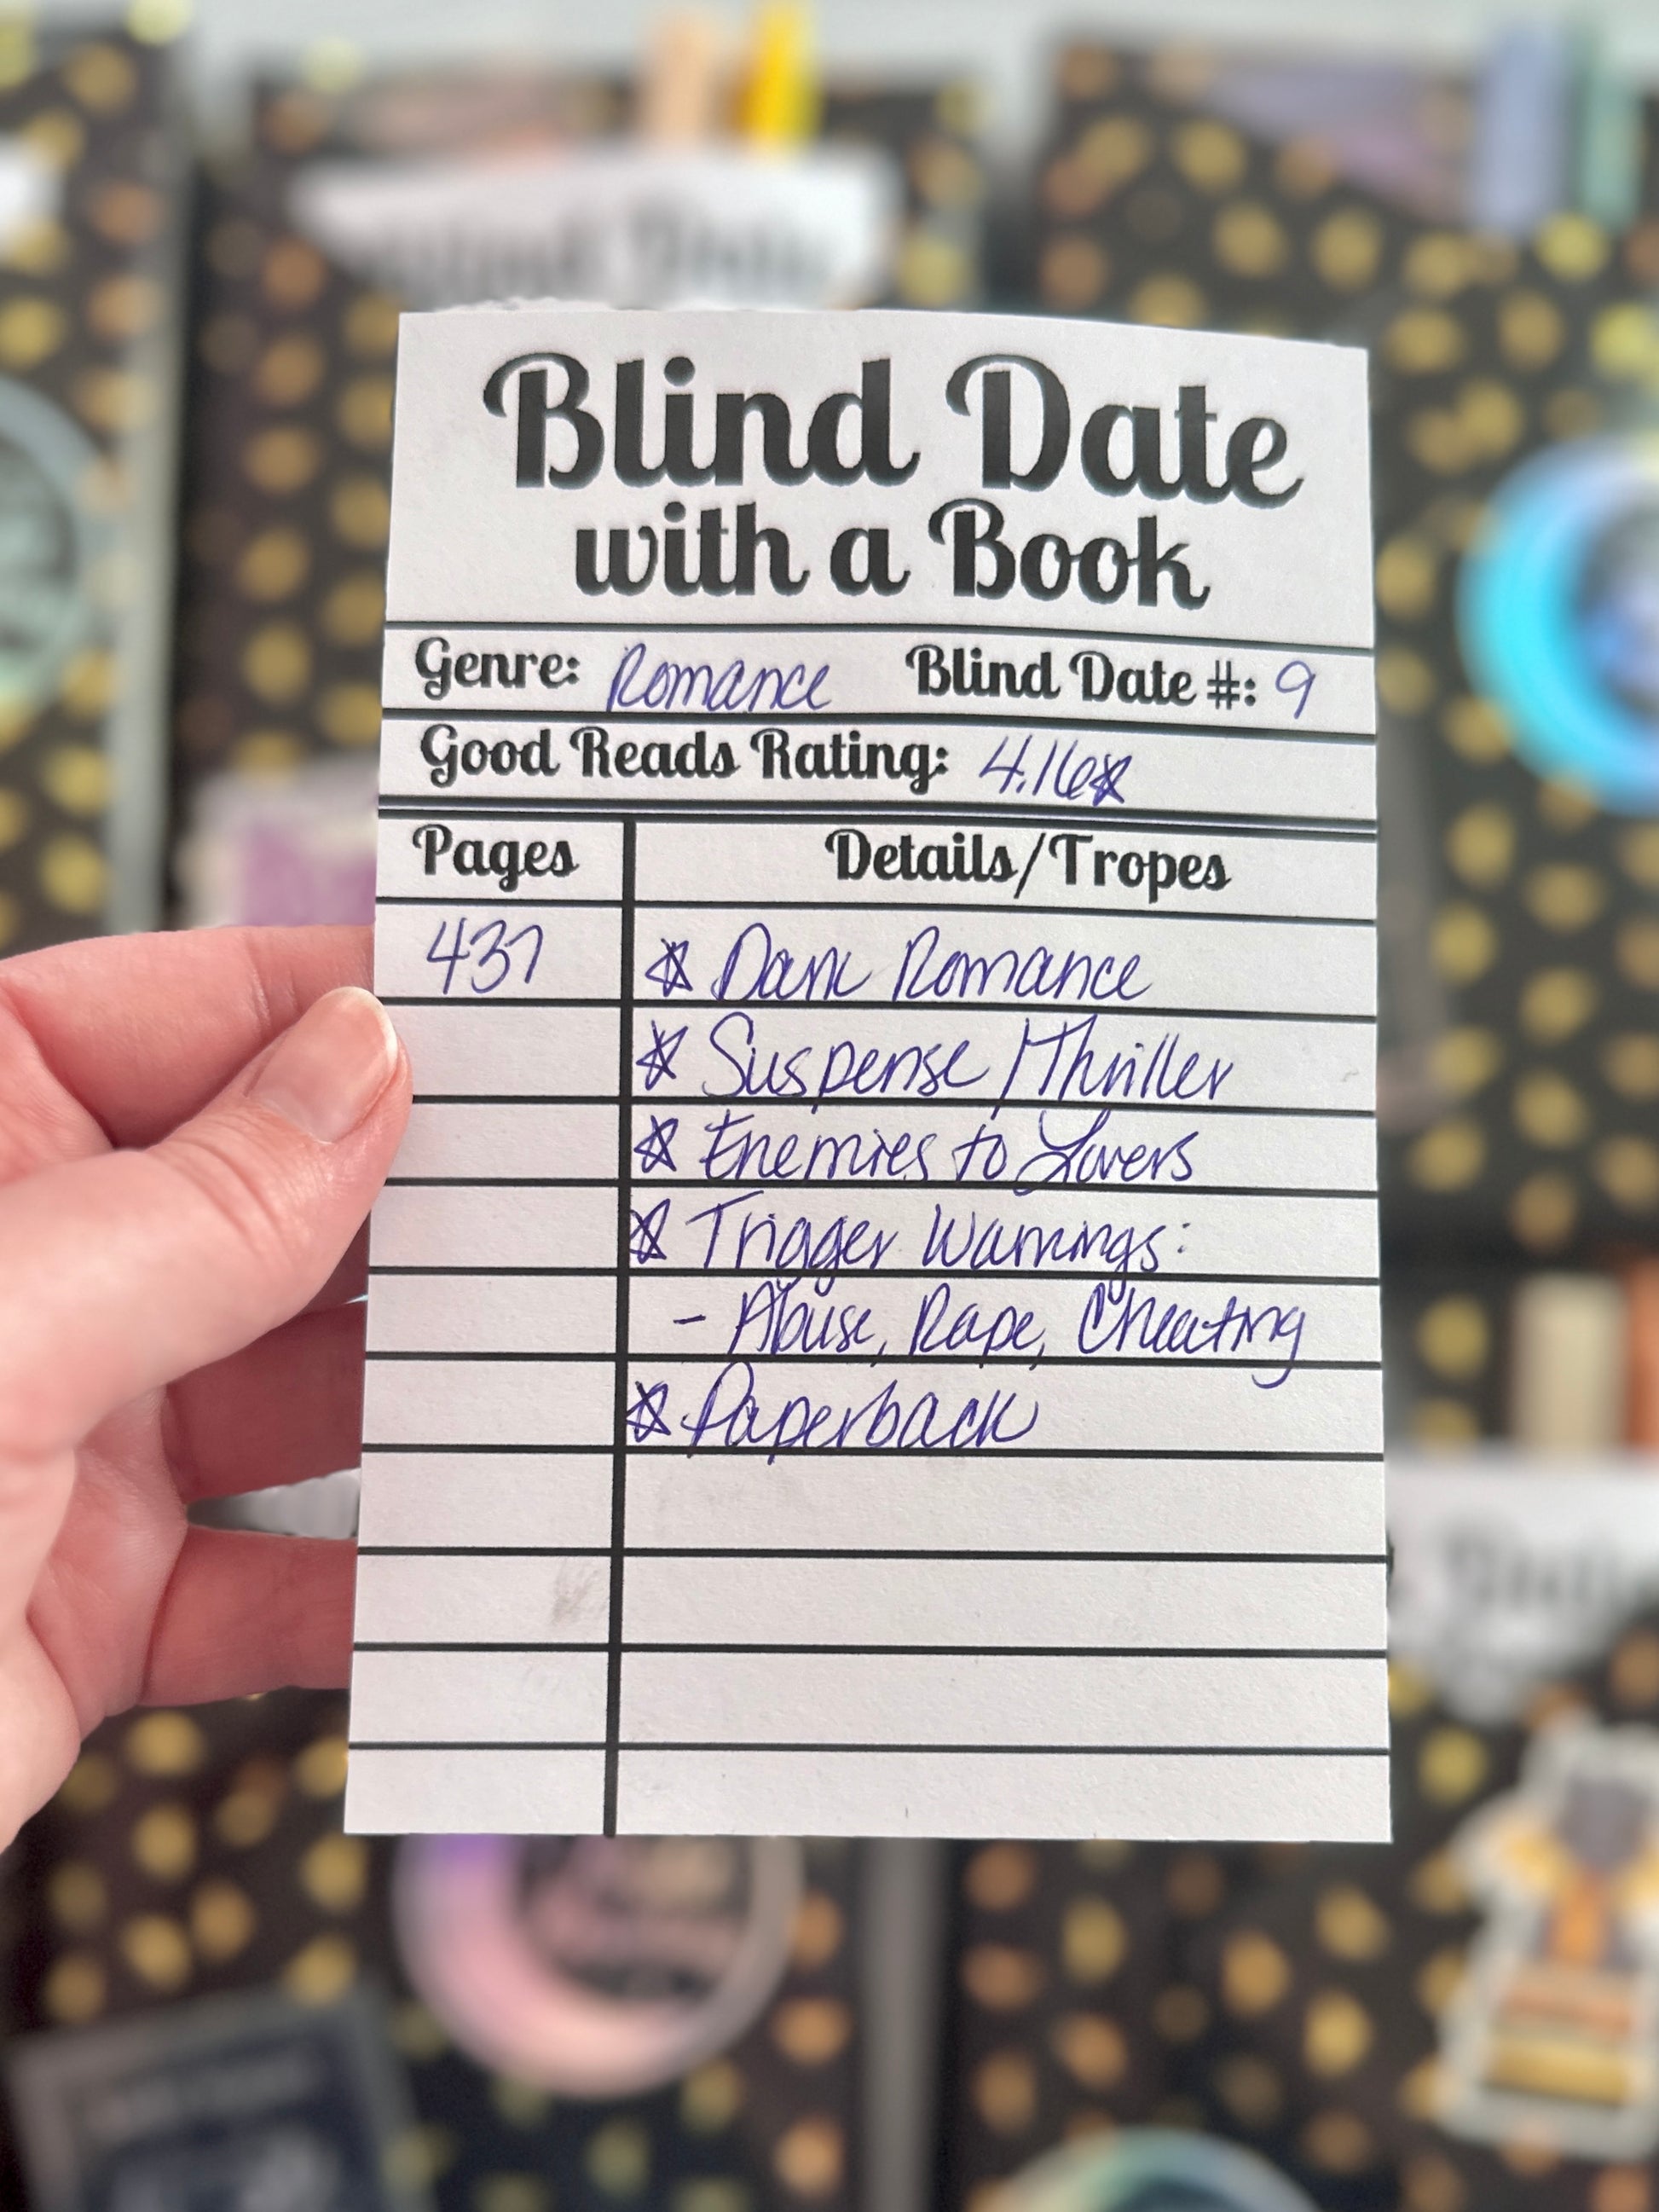 Blind Date
with a Book
Genre: Romance Blind Date #: 9
Good Reads Rating: 4.16☆
Pages Details/Tropes
437 ☆ Dark Romance
☆ Suspense/Thriller
☆ Enemies to Lovers
☆ Trigger Warnings:
- Abuse, Rape, Cheating
☆ Paperback